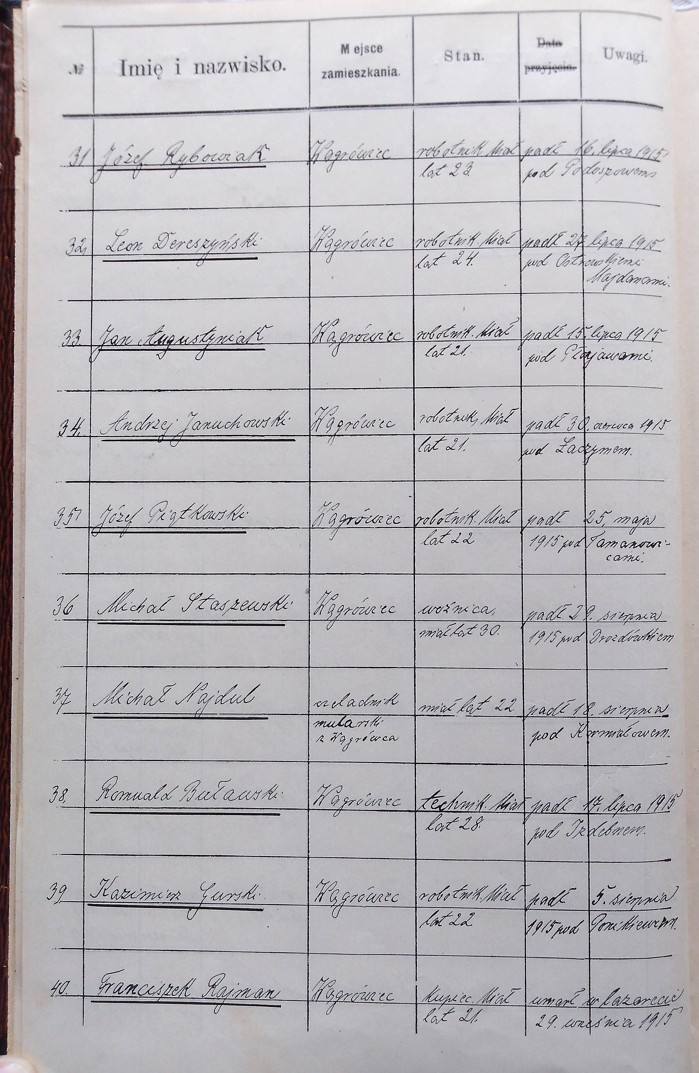 № Imię i nazwisko. Miejsce zamieszkania. Stan. Data przyjęcia. Uwagi.
31 Józef Rybowiak Wągrówiec robotnik. Miał padł 16. lipca 1915
lat 23. pod
32. Leon Dereszyński. Wągrówiec robotnik. Miał padł 27. lipca 1915
lat 24. pod Ostrowskiemi
Majdanami.
33. Jan Augustyniak Wągrówiec robotnik. Miał padł 15. lipca 1915
lat 21. pod
34. Andrzej Januchowski. Wągrówiec robotnik, Miał padł 30. czerwca 1915
lat 21. pod Łaczymem.
35 Józef Piątkowski. Wągrówiec robotnik. Miał padł 25. maja
lat 22 1915 pod Tamanowi-
cami.
36 Michał Staszewski. Wągrówiec woźnica, padł 29. sierpnia
miał lat 30. 1915 pod
37. Michał Najdul czeladnik miał lat 22 padł 18. sierpnia
mularski pod
z Wągrówca
38. Romuald Buławski. Wągrówiec technik. Miał padł 17. lipca 1915
lat 28. pod Izdebnem.
39 Kazimierz Gurski. Wągrówiec robotnik. Miał padł 5. sierpnia
lat 22 1915 pod
40. Franciszek Rajman Wągrówiec kupiec. Miał umarł w lazarecie
lat 21. 29. września 1915